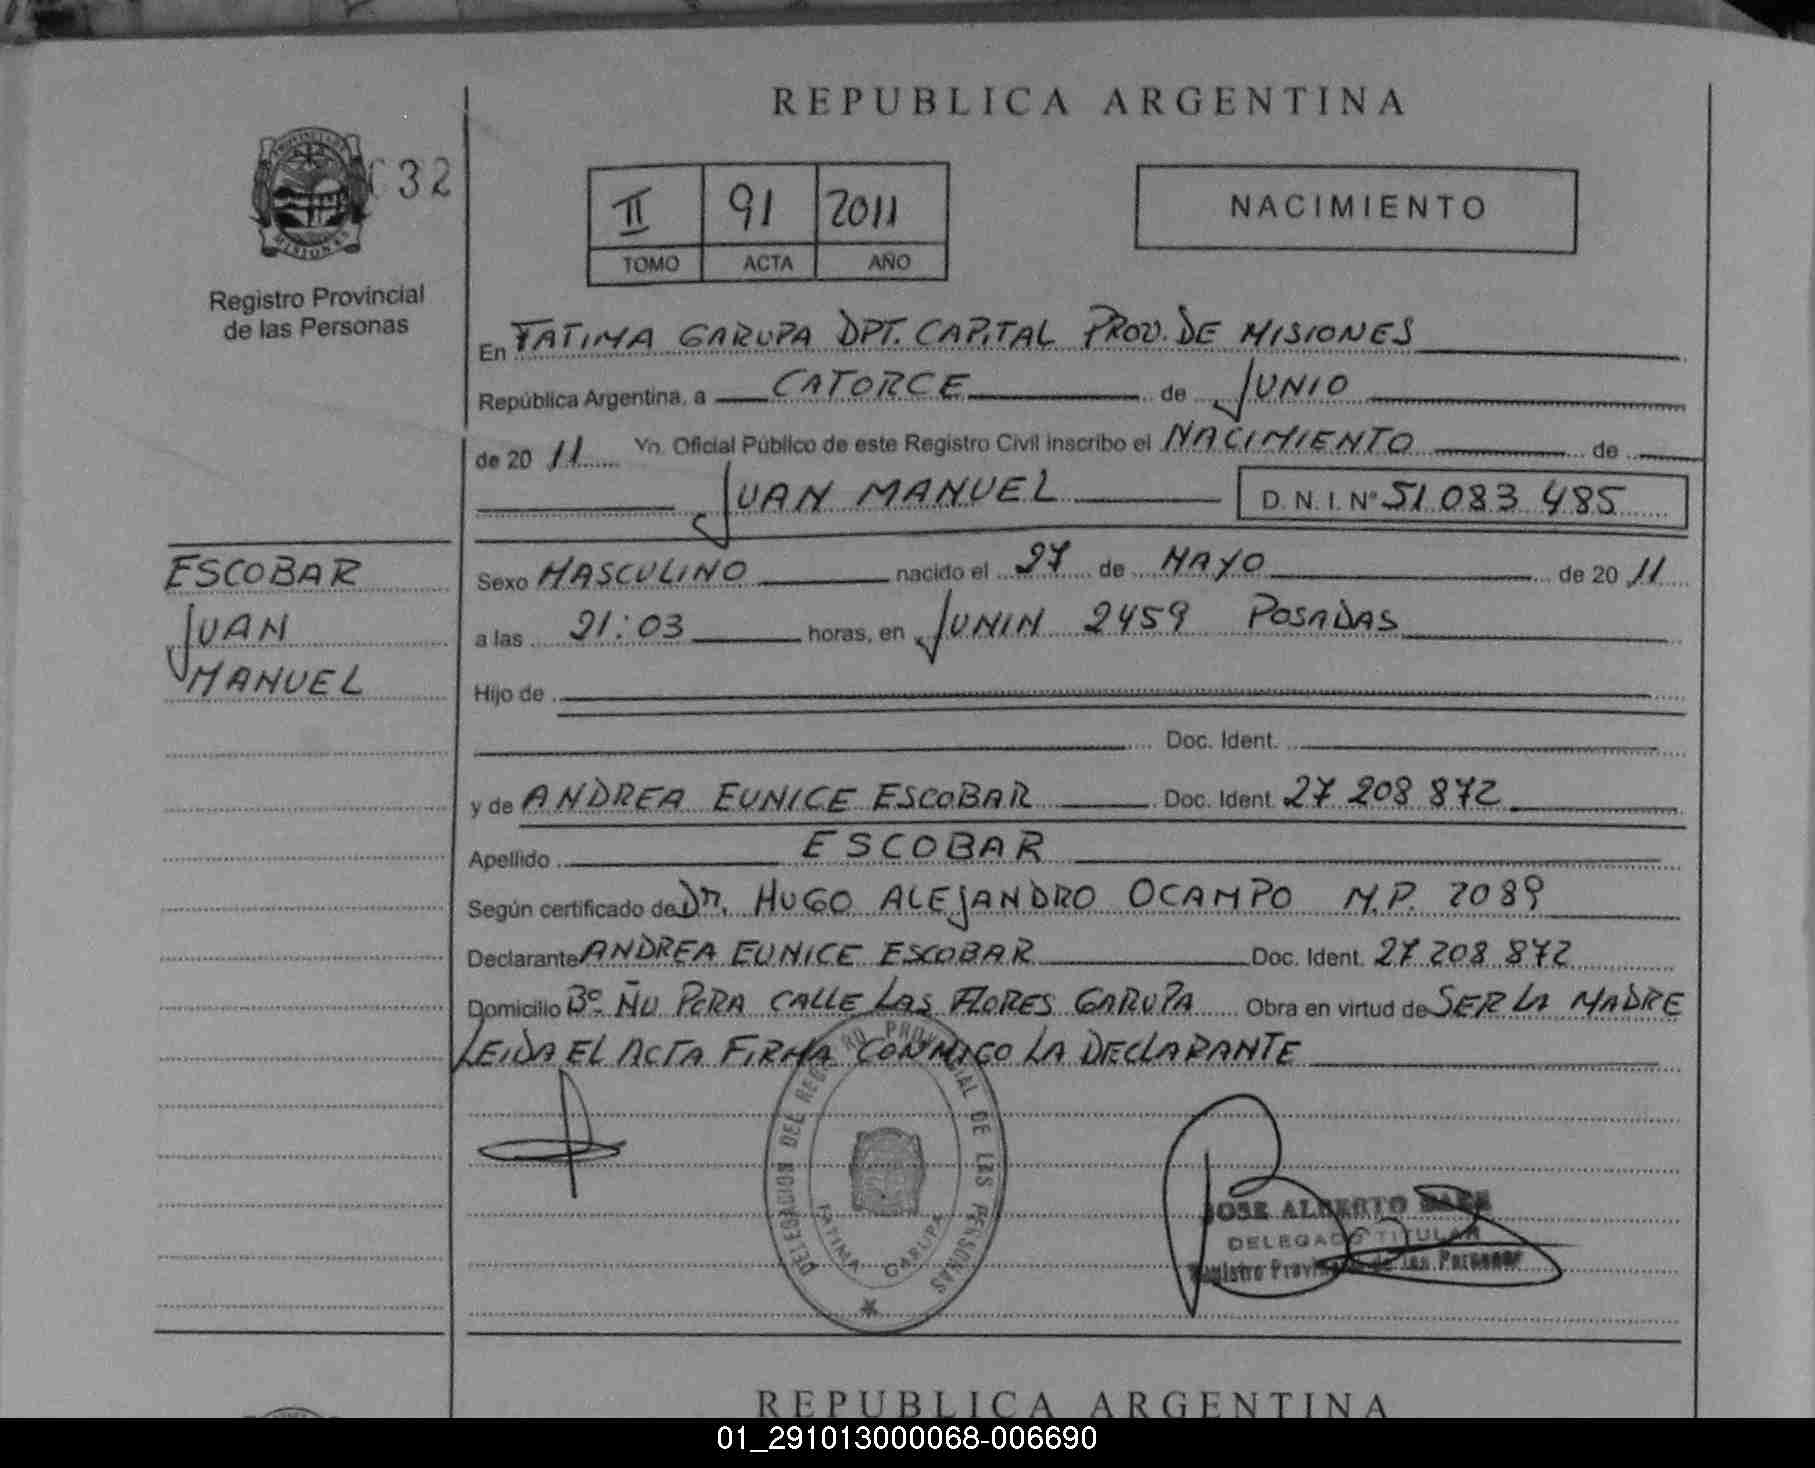 REPUBLICA ARGENTINA
PROVINCIA DE
MISIONES
632
Registro Provincial
de las Personas
II 91 2011
TOMO ACTA AÑO
NACIMIENTO
En FATIMA GARUPA DPT. CAPITAL PROV. DE MISIONES
República Argentina, a CATORCE de JUNIO
de 20 11 Yo, Oficial Público de este Registro Civil inscribo el NACIMIENTO de
JUAN MANUEL D. N. I. Nº 51 083 485
ESCOBAR
JUAN
MANUEL
Sexo MASCULINO nacido el 27 de MAYO de 20 11
a las 21:03 horas, en JUNIN 2459 POSADAS
Hijo de
Doc. Ident.
y de ANDREA EUNICE ESCOBAR Doc. Ident. 27 208 872
Apellido ESCOBAR
Según certificado de Dr. HUGO ALEJANDRO OCAMPO M.P. 2089
Declarante ANDREA EUNICE ESCOBAR Doc. Ident. 27 208 872
Domicilio Bº ÑU PORA CALLE LAS FLORES GARUPA Obra en virtud de SER LA MADRE
LEIDA EL ACTA FIRMA CONMIGO LA DECLARANTE
DELEGACION DEL REGISTRO PROVINCIAL DE LAS PERSONAS
FATIMA GARUPA
JOSE ALBERTO
DELEGADO TITULAR
Registro Provincial de las Personas
REPUBLICA ARGENTINA
01_291013000068-006690